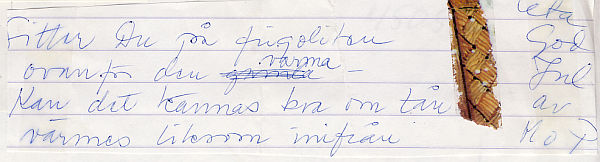 Sitter Du på frigoliten
ovanför den varma –
Kan det kännas bra om tån
värmes liksom inifrån
God
Jul
av
M o P